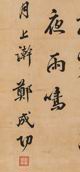 夜雨鳴
月上澣 鄭成功